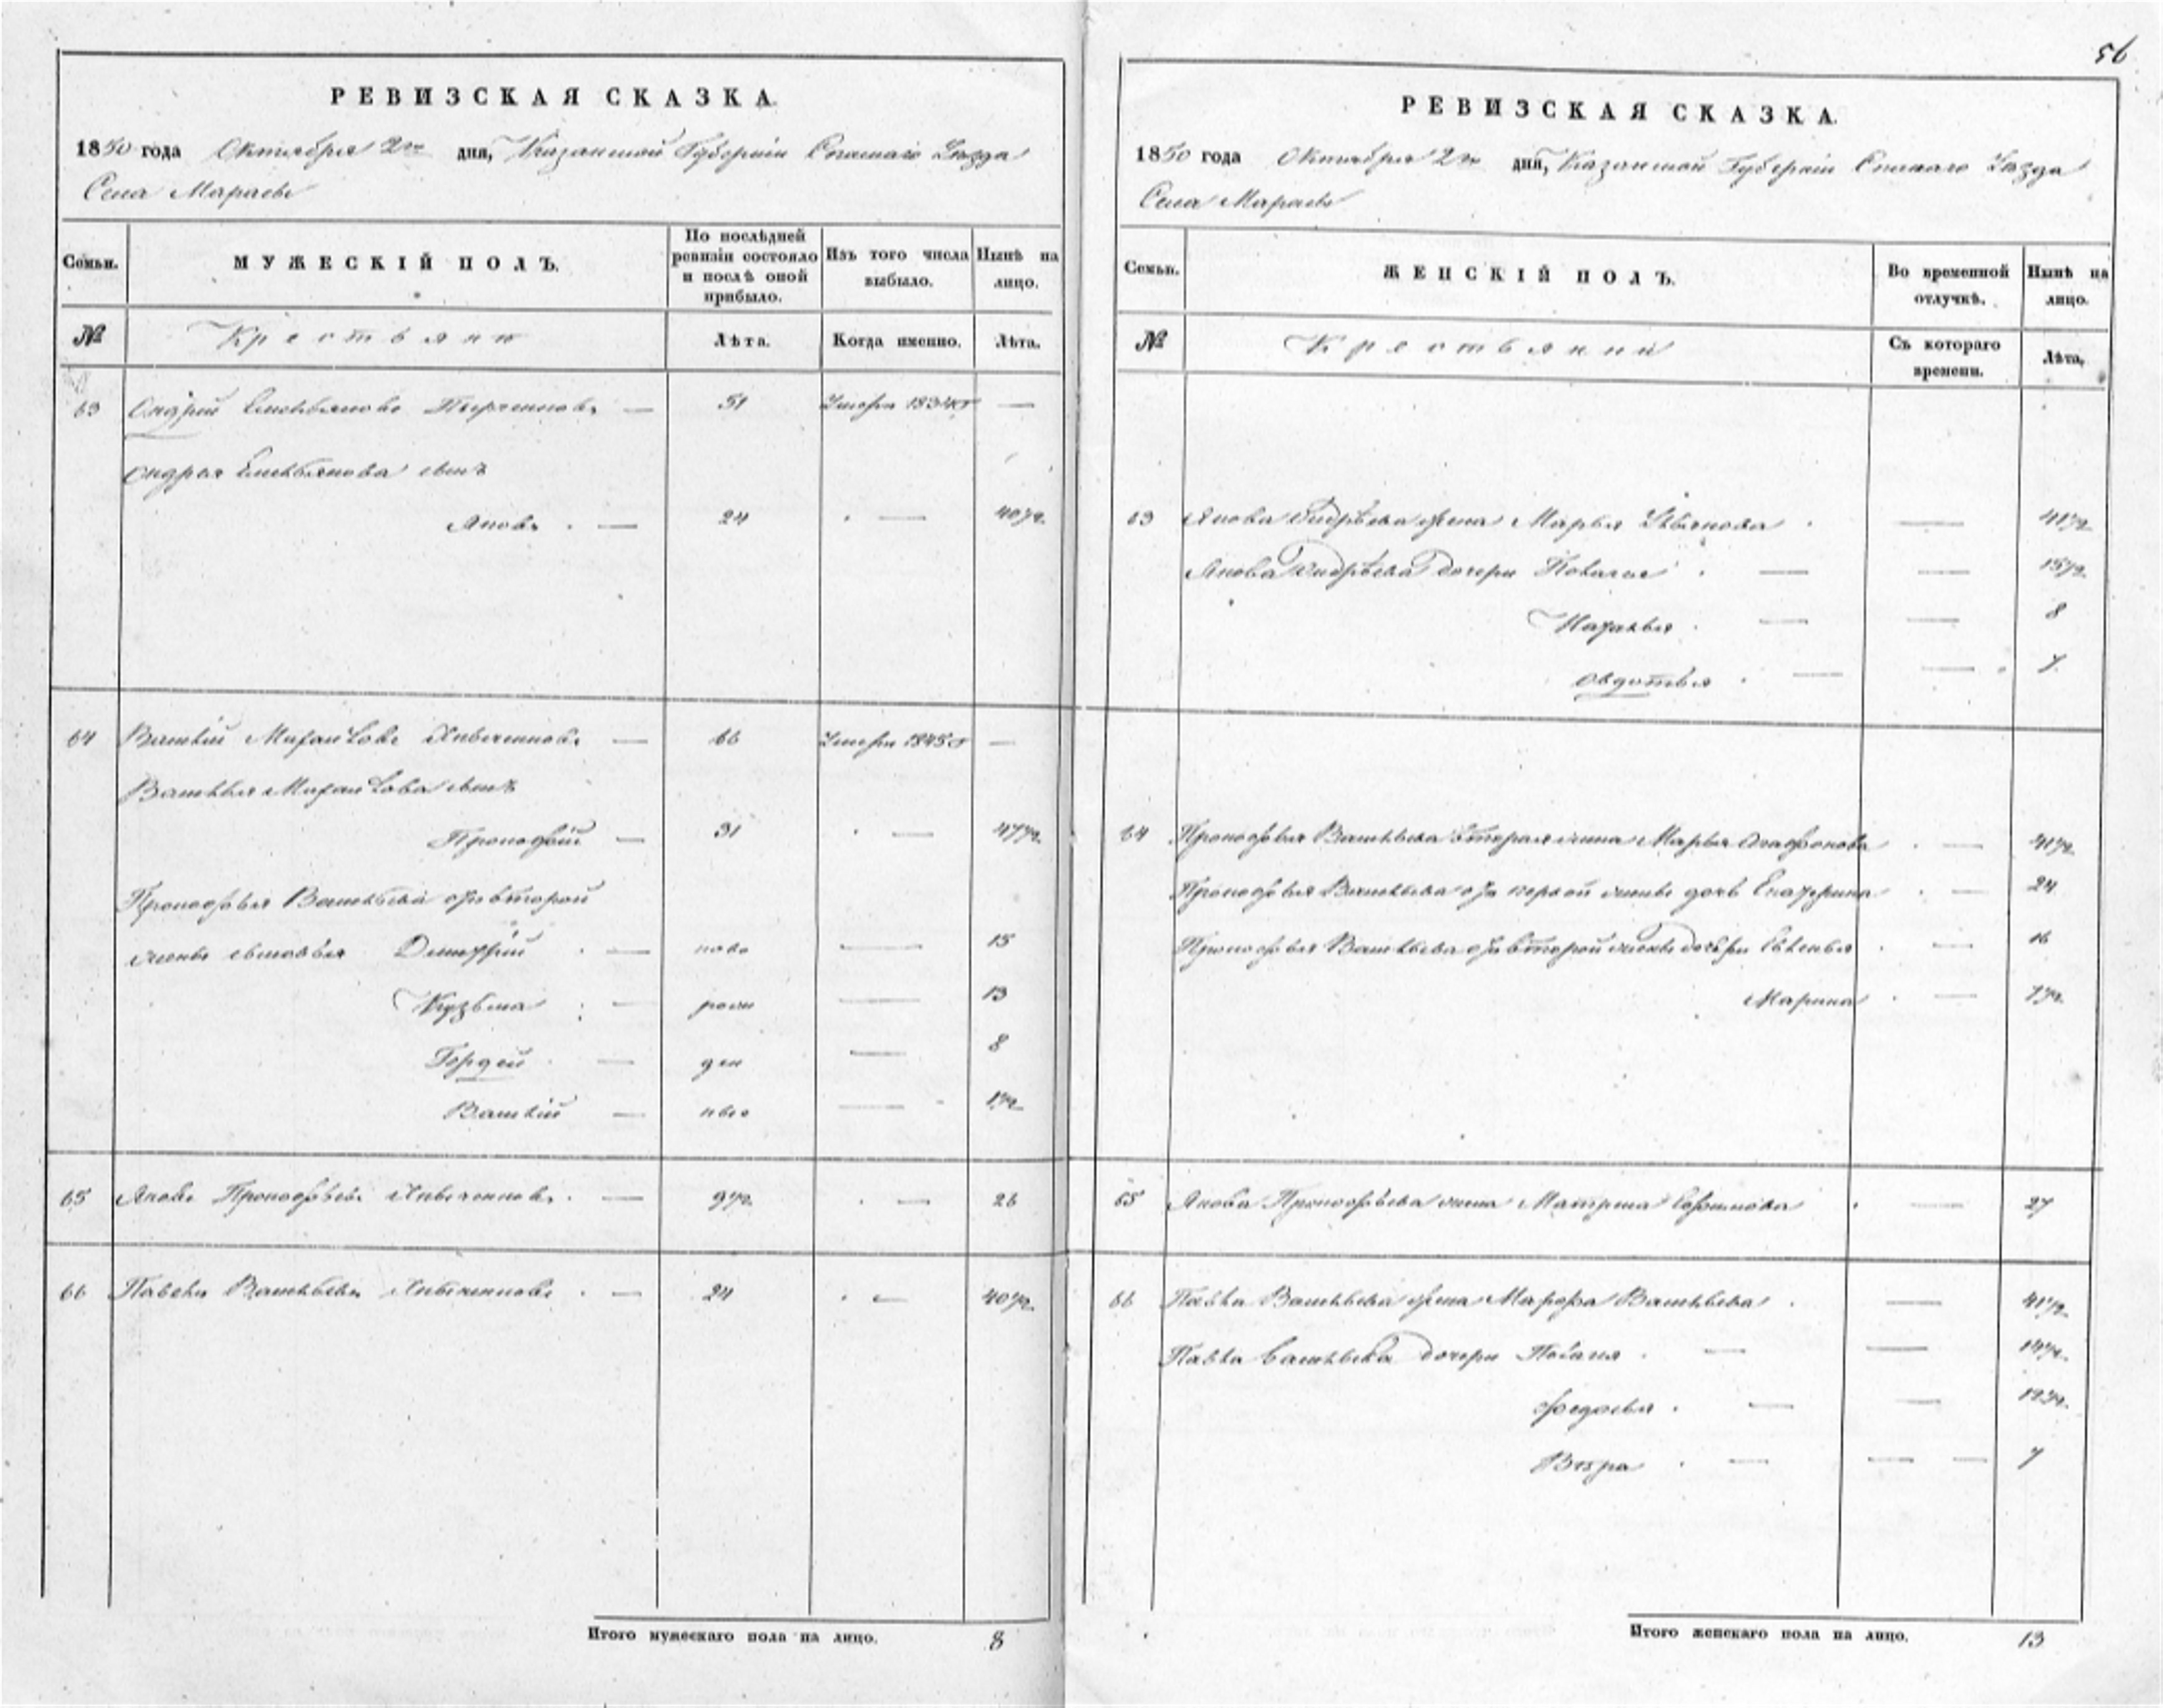 56
РЕВИЗСКАЯ СКАЗКА.
1850 года Октября 2го дня, Казанской Губернiи Спаскаго Уезда
Села Марасы
Семьи. МУЖЕСКІЙ ПОЛЪ. По послѣдней ревизіи состояло и послѣ оной прибыло. Изъ того числа выбыло. Нынѣ на лицо.
№ Крестьяни Лѣта. Когда именно. Лѣта.
63 Андрей Емельяновъ — 51 Умеръ 1834 —
Андрея Емельянова сынъ
Яковъ — 24 — 40½
64 Василій — 66 Умеръ 1845 —
Василья сынъ
Прокофій — 31 — 47½
Прокофья Васильева отъ второй
жены сыновья Дмитрій — ново — 15
Кузьма — рож — 13
Гордей — ден — 8
Василій — ные — 1½
65 Яковъ Прокофьевъ — 9½ — 26
66 Павелъ Васильевъ — 24 — 40½
Итого мужескаго пола на лицо. 8
РЕВИЗСКАЯ СКАЗКА.
1850 года Октября 2го дня, Казанской Губернiи Спаскаго Уезда
Села Марасы
Семьи. ЖЕНСКІЙ ПОЛЪ. Во временной отлучкѣ. Нынѣ на лицо.
№ Крестьянии Съ котораго времени. Лѣта.
63 Якова Андреева жена Марья — 41½
Якова Андреева дочери Пелагея — — 15½
Наталья — — 8
Овдотья — — 7
64 Прокофья Васильева вторая жена Марья Агафонова — 41½
Прокофья Васильева отъ первой жены дочь Екатерина — 24
Прокофья Васильева отъ второй жены дочери Евгенья — 16
Марина — 7½
65 Якова Прокофьева жена Матрена — 27
66 Павла Васильева жена Марфа Васильева — 41½
Павла Васильева дочери — — 14½
Федосья — — 12½
Вера — — — 7
Итого женскаго пола на лицо. 13